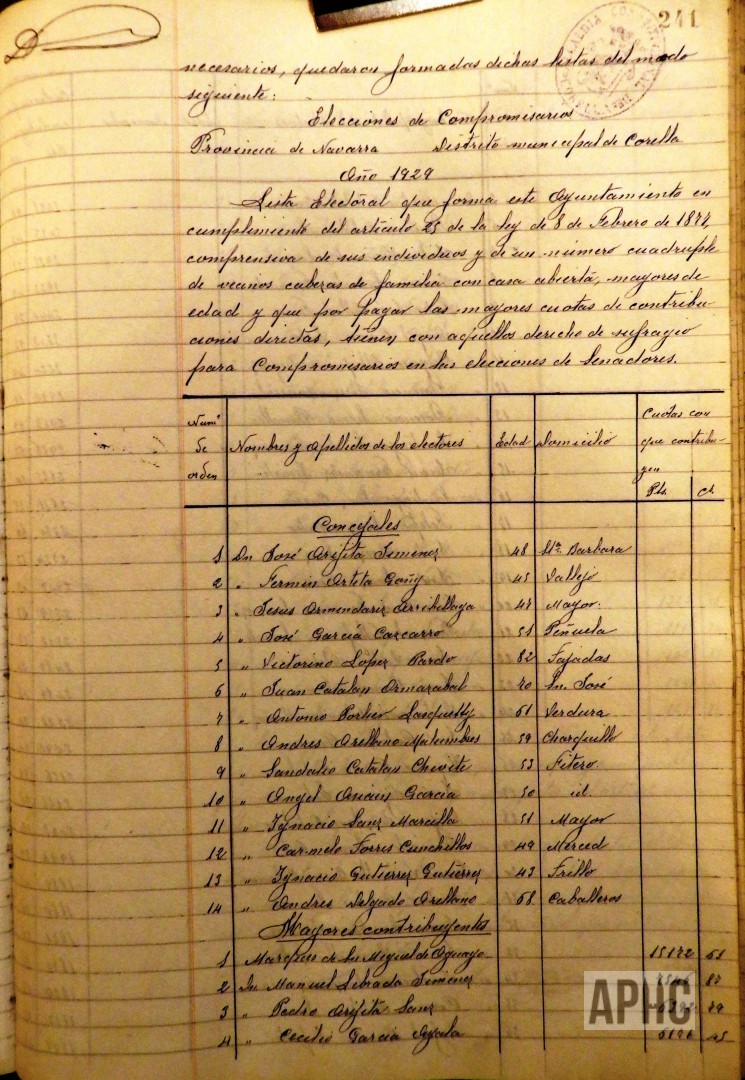 241
necesarios, quedaron formadas dichas listas del modo
siguiente:
Elecciones de Compromisarios
Provincia de Navarra Distrito municipal de Corella
Año 1929
Lista Electoral que forma este Ayuntamiento en
cumplimiento del artículo 25 de la ley de 8 de Febrero de 1877,
comprensiva de sus individuos y de un número cuadruple
de vecinos cabezas de familia con casa abierta, mayores de
edad y que por pagar las mayores cuotas de contribu-
ciones directas, tienen con aquellos derecho de sufragio
para Compromisarios en las elecciones de Senadores.
Numº de orden Nombres y Apellidos de los electores Edad Domicilio Cuotas con que contribuyen
Pts. Ct.
Concejales
1 Dn José Arifita Jimenez 48 Sta. Barbara
2 " Fermin Arteta Goñy 45 Vallejo
3 " Jesus Armendariz Arribillaga 47 Mayor.
4 " José García Cascarro 51 Peñuela
5 " Victorino López Pardo 82 Tajadas
6 " Juan Catalan Ormazabal 70 Sn. José
7 " Antonio Portier 61 Verdura
8 " Andres Arellano Malumbres 59 Charquillo
9 " Sandalio Catalan Chivite 53 Fitero.
10 " Angel García 50 id.
11 " Ygnacio Sanz Marcilla 51 Mayor
12 " Carmelo Torres Cunchillos 49 Merced
13 " Ygnacio Gutiérrez Gutiérrez 43 Frillo
14 " Andres Delgado Arellano 68 Caballeros
Mayores contribuyentes
1 Marques de Sn Miguel de Aguayo 15172 61
2 Dn. Manuel Librada Jimenez 87
3 " Pedro Arifita Sanz 79
4 " Cecilio García Ayala
APHC